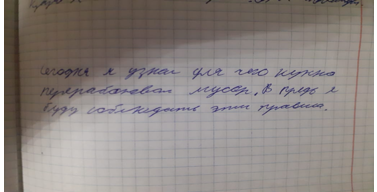 Сегодня я узнал для чего нужно
перерабатывать мусор. В предь я
буду соблюдать эти правила.